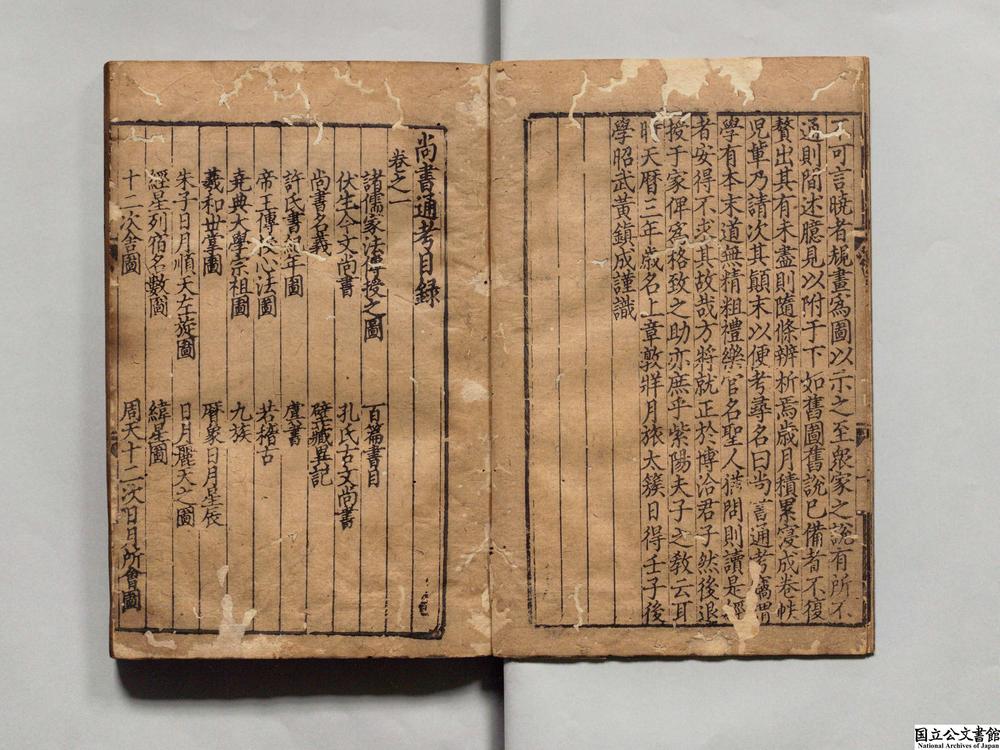 不可言曉者輒畫爲圖以示之至衆家之說有所不
通則間述臆見以附于下如舊圖舊說已備者不復
贅出其有未盡則隨條辨析焉歲月積累寖成卷帙
児輩乃請次其顛末以便考尋名曰尚書通考竊謂
學有本末道無精粗禮樂官名聖人猶問則讀是經
者安得不求其故哉方將就正於博洽君子然後退
授于家俾寔格致之助亦庶乎紫陽夫子之敎云耳
時天曆三年歲名上章敦牂月旅太簇日得壬子後
學昭武黃鎮成謹識
尚書通考目録
卷之一
諸儒家法傳授之圖
百篇書目
伏生今文尚書
孔氏古文尚書
尚書名義
壁藏異記
許氏書紀年圖
虞書
帝王傳授心法圖
若稽古
堯典大學宗祖圖
九族
羲和丗掌圖
曆象日月星辰
朱子日月順天左旋圖
日月麗天之圖
經星列宿名數圖
緯星圖
十二次吉圖
周天十二次日月所會圖
国立公文書館
National Archives of Japan